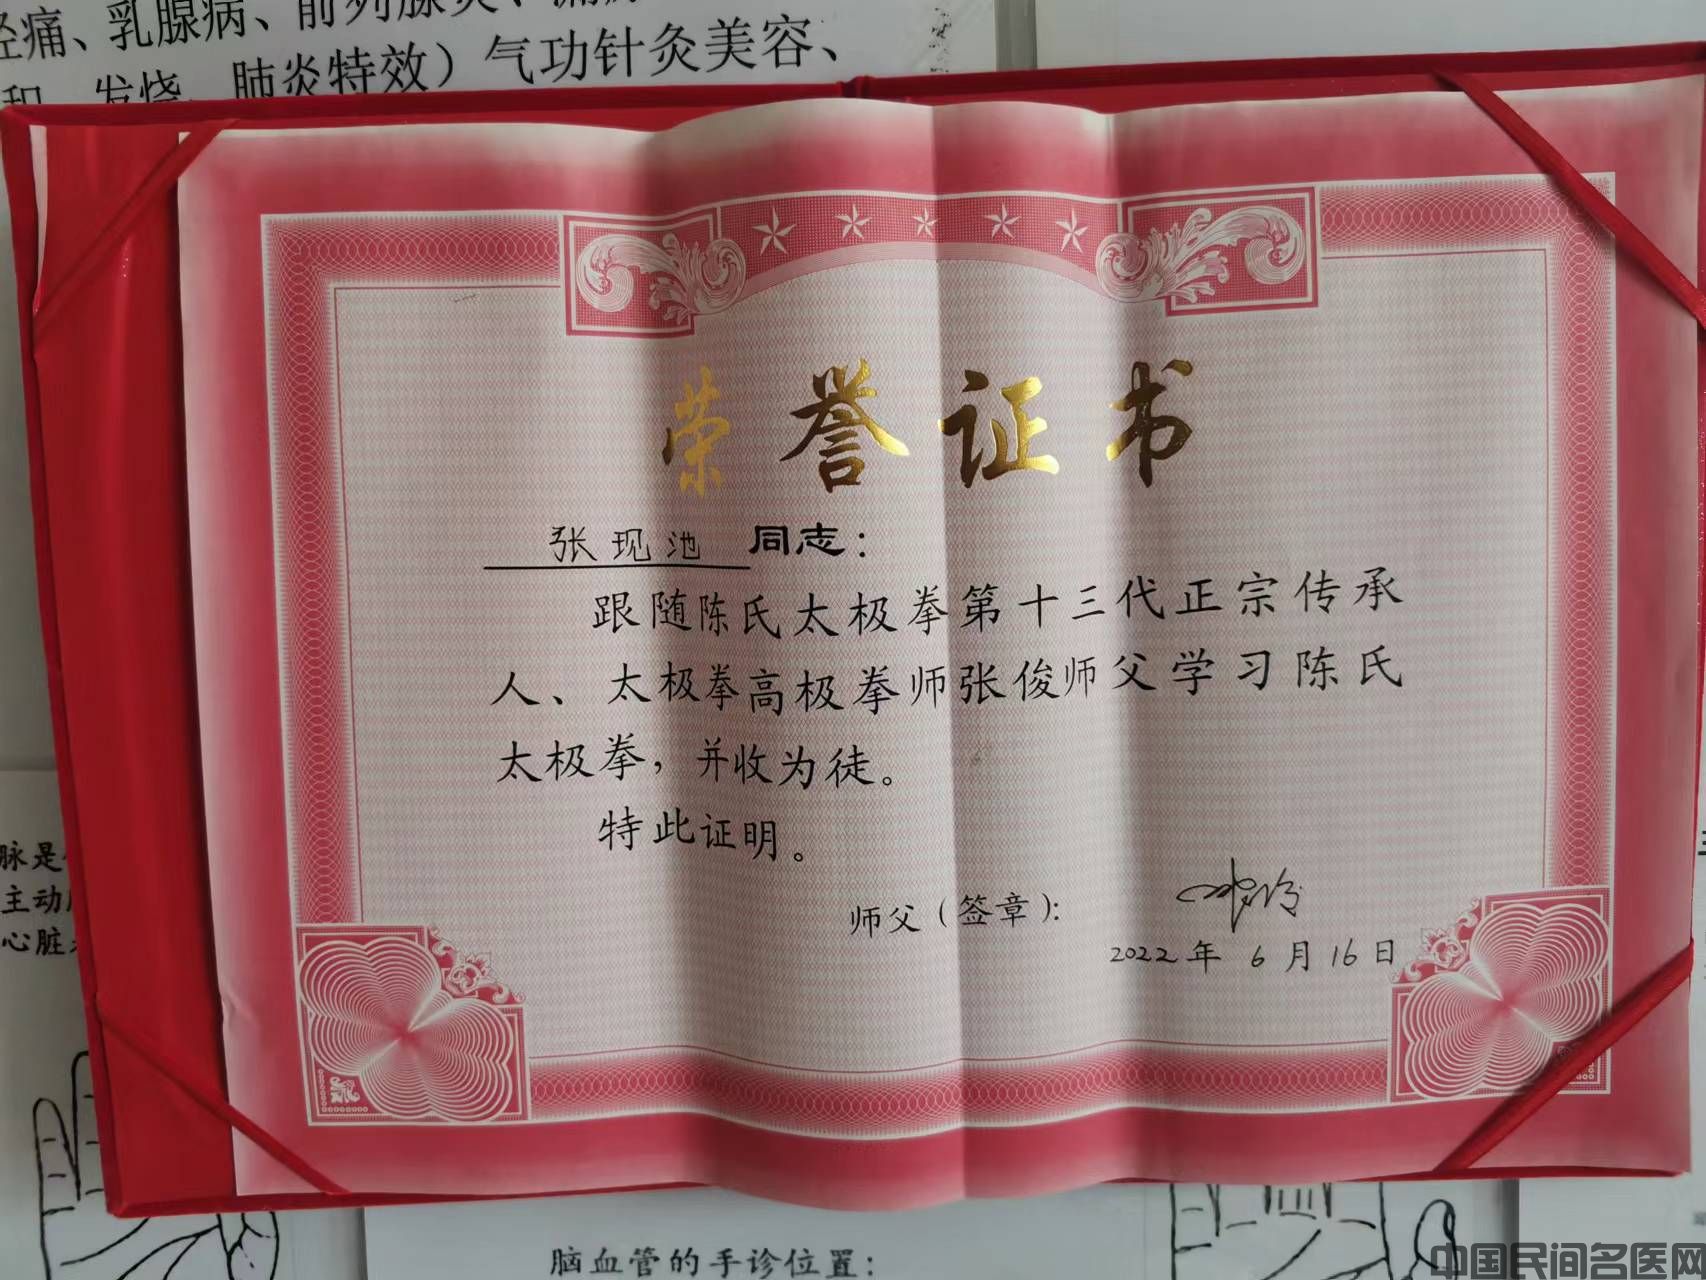 痛、乳腺病、前列腺炎、
发烧、肺炎特效）气功针灸美容、
荣誉证书
张现池 同志：
跟随陈氏太极拳第十三代正宗传承
人、太极拳高极拳师张俊师父学习陈氏
太极拳，并收为徒。
特此证明。
师父（签章）：
2022年 6月16日
脉是
主动
心脏
脑血管的手诊位置：
中国民间名医网